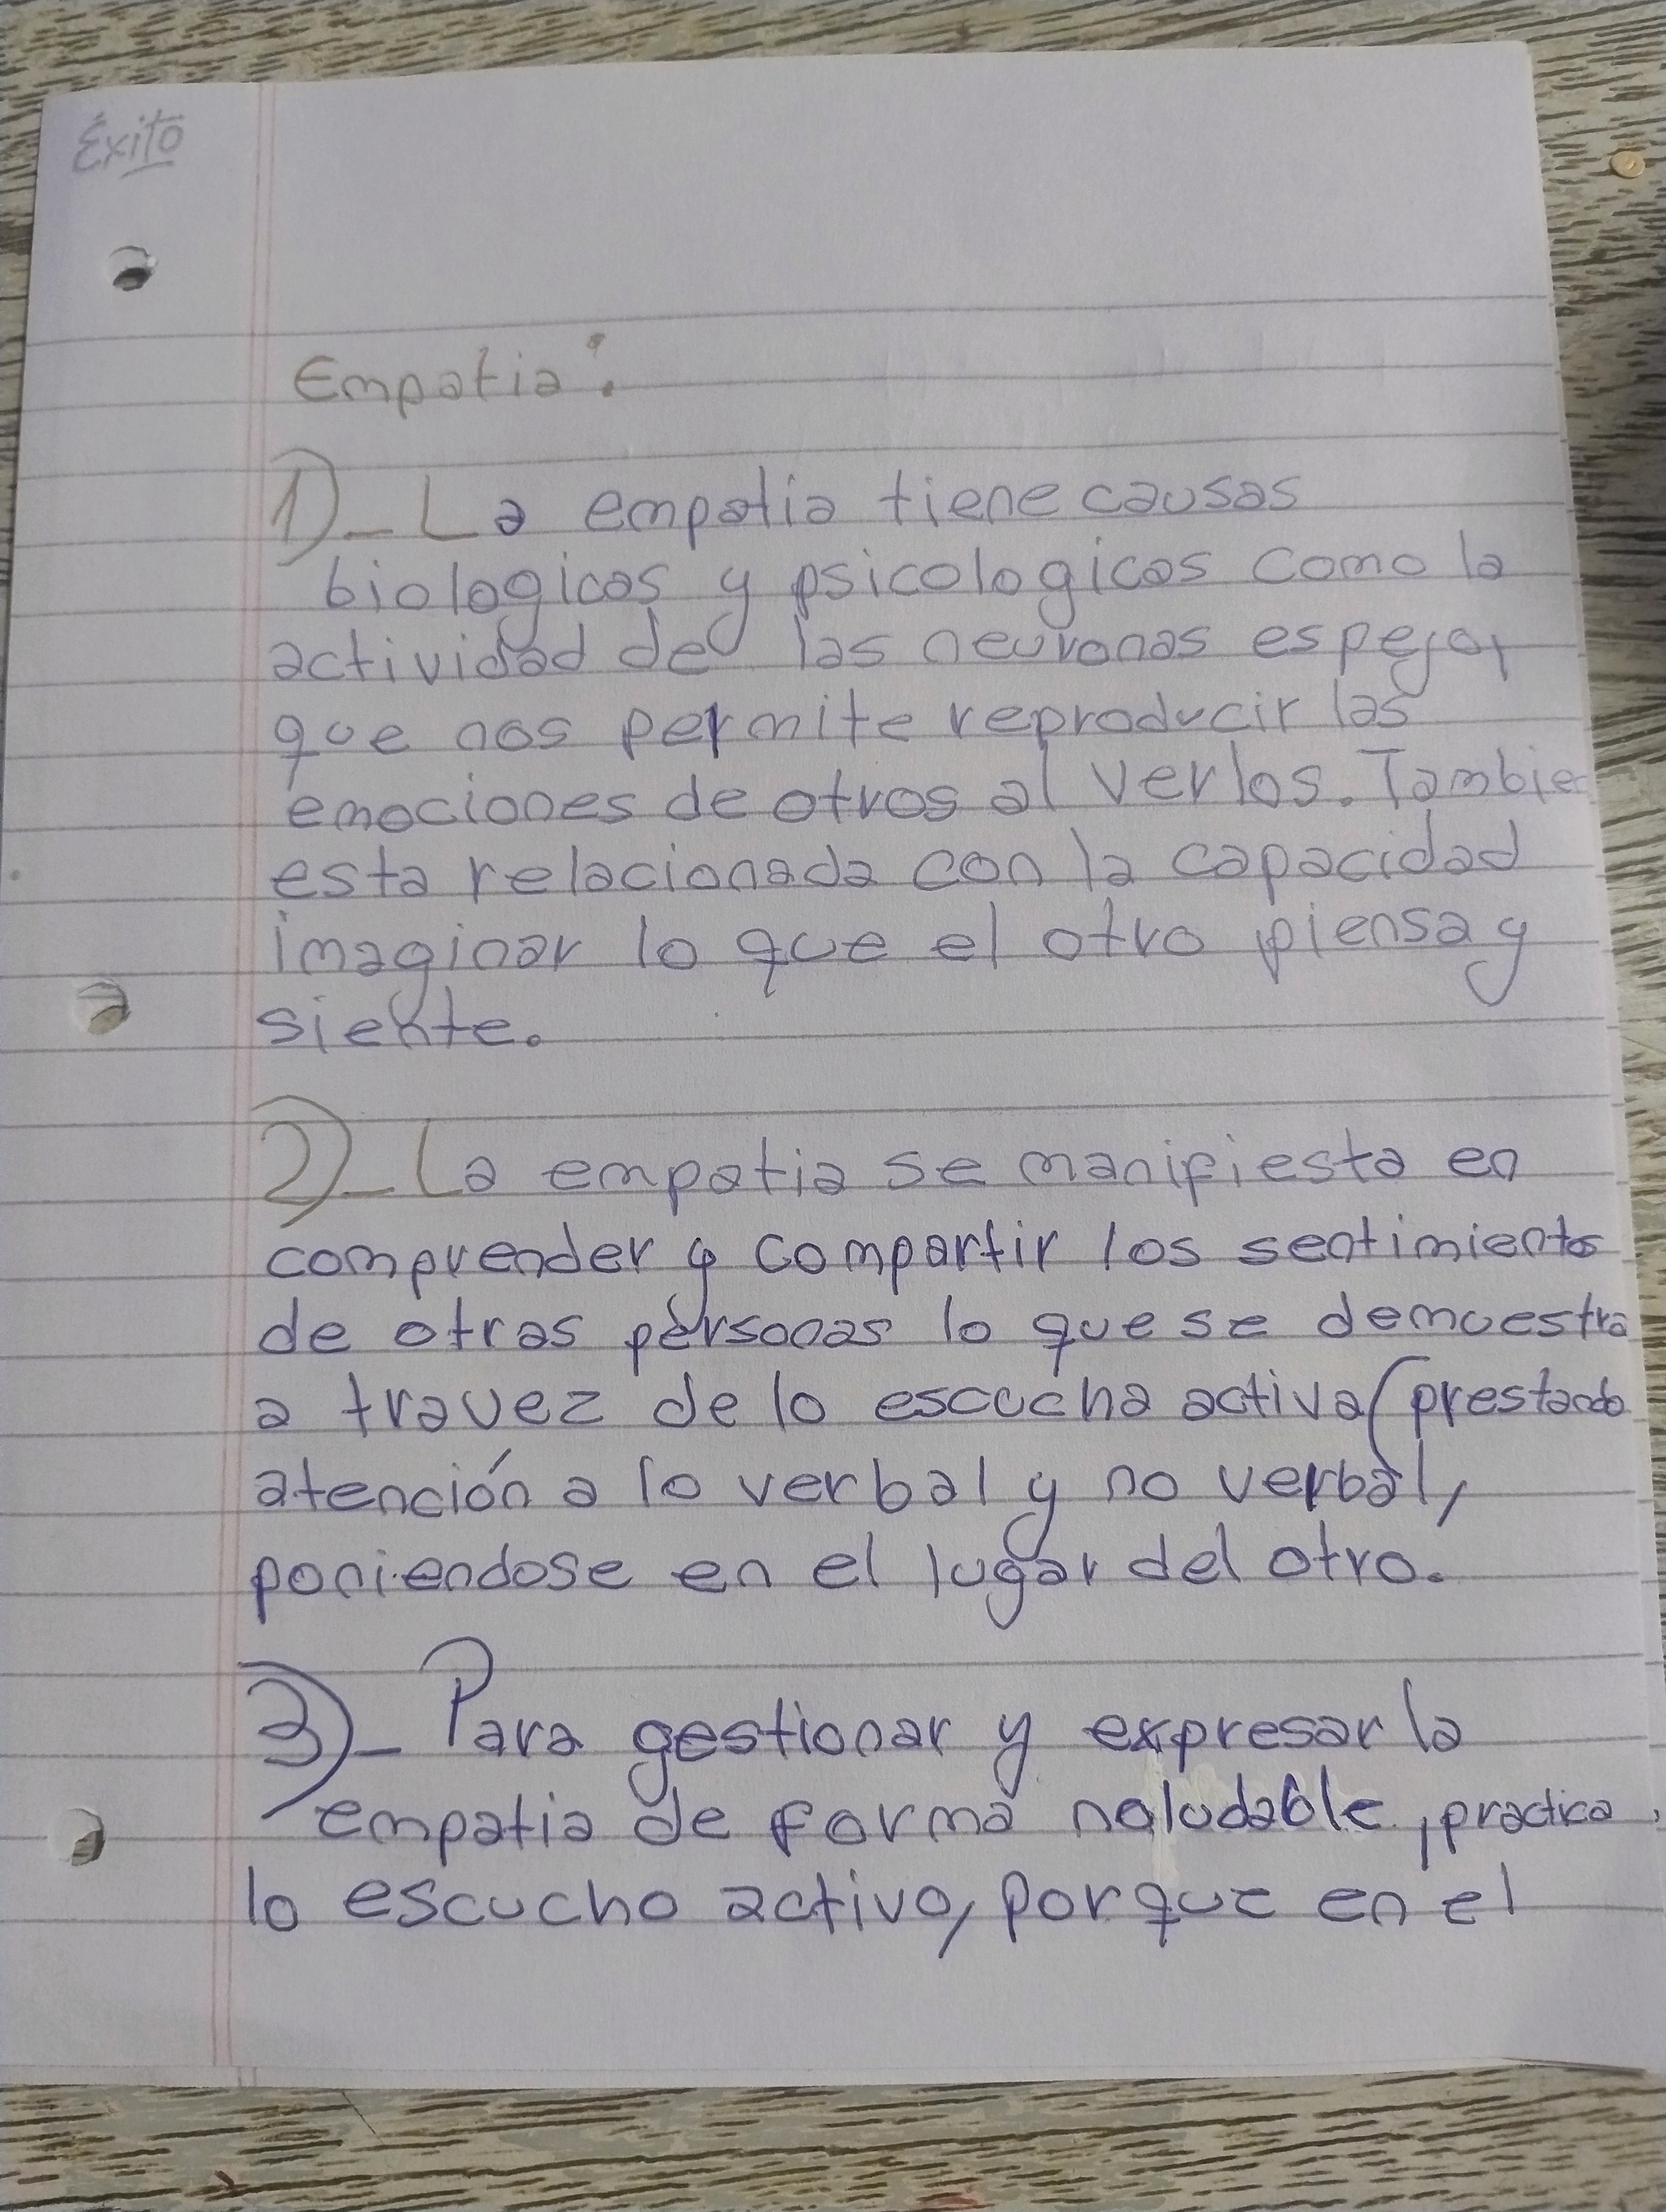 Éxito
Empatia:
1)_ La empatia tiene causas
biologicas y psicologicas como la
actividad de las neuronas espejo,
que nos permite reproducir las
emociones de otros al verlos. Tambien
esta relacionada con la capacidad
imaginar lo que el otro piensa y
siente.
2)_ La empatia se manifiesta en
comprender y compartir los sentimientos
de otras personas lo que se demuestra
a travez de lo escucha activa (prestando
atención a lo verbal y no verbal,
poniendose en el lugar del otro.
3)_ Para gestionar y expresar la
empatia de forma naludable, practica
lo escucho activo, porque en el